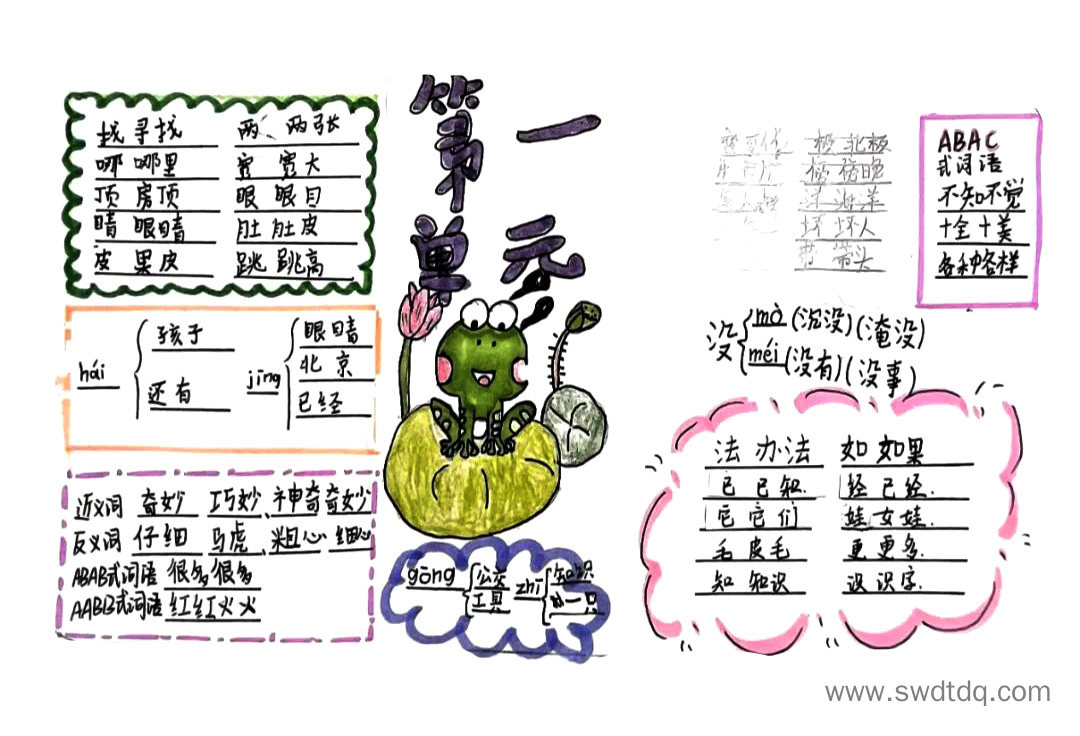 第一
单元
找 寻找 两 两张
哪 哪里 宽 宽大
顶 房顶 眼 眼目
睛 眼睛 肚 肚皮
皮 果皮 跳 跳高
极 北极
傍 傍晚
洋 海洋
坏 坏人
带 带头
ABAC
式词语
不知不觉
十全十美
各种各样
hái
孩子
还有
jīng
眼睛
北京
已经
没
mò (沉没)(淹没)
méi (没有)(没事)
近义词 奇妙 巧妙、神奇奇妙
反义词 仔细 马虎、粗心 细心
ABAB式词语 很多很多
AABB式词语 红红火火
gōng
公交
工具
zhī
知识
一只
法 办法 如 如果
已 已知. 经 已经.
它 它们 娃 女娃.
毛 皮毛 更 更多.
知 知识 识 识字.
www.swdtdq.com